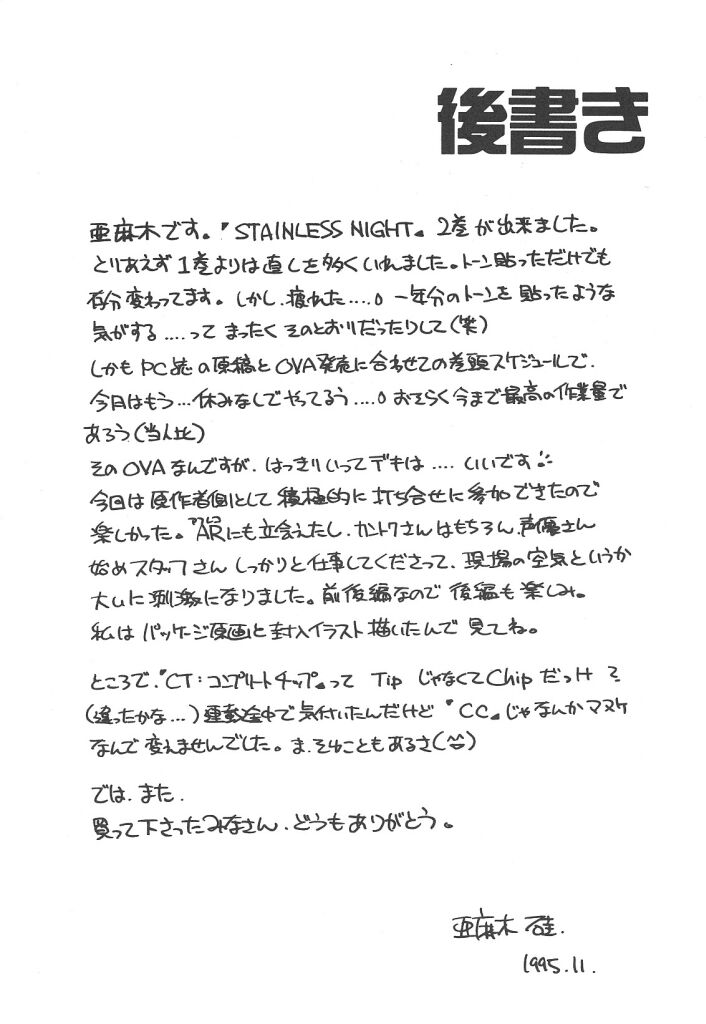 後書き
亜麻木です。『STAINLESS NIGHT』2巻が出来ました。
とりあえず1巻よりは直しを多くいれました。トーン貼っただけでも
百分変わってます。しかし、疲れた....。一年分のトーンを貼ったような
気がする....ってまったくそのとおりだったりして(笑)
しかもPC誌の原稿とOVA発売に合わせての巻頭スケジュールで、
今月はもう...休みなしでやってるう....。おそらく今まで最高の作業量で
あろう(当人比)
そのOVAなんですが、はっきりいってデキは....いいです
今回は原作者側として積極的に打ち合せに参加できたので
楽しかった。ARにも立会えたし、カントクさんはもちろん、声優さん
始めスタッフさんしっかりと仕事してくださって、現場の空気というか
大いに刺激になりました。前後編なので後編も楽しみ。
私はパッケージ原画と封入イラスト描いたんで見てね。
ところで、『CT:コンプリートチップ』ってTipじゃなくてChipだっけ?
(違ったかな...)途中で気付いたんだけど『CC』じゃなんかマヌケ
なんで変えませんでした。ま、そんなこともあるさ(^^)
では、また。
買って下さったみなさん、どうもありがとう。
亜麻木 硅.
1995.11.